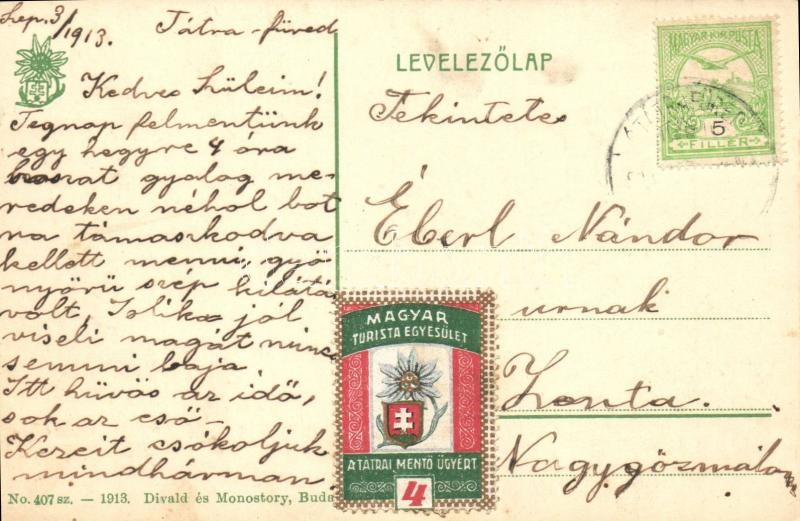 Sep. 3/1913. Tátra-füred
Kedves Szüleim!
Tegnap felmentünk
egy hegyre 4 óra
hosszat gyalog me-
redeken néhol bot
ra támaszkodva
kellett menni, gyö
nyörü szép kilátá
volt,
jól
viseli magát nincs
semmi baja
Itt hüvös az idő,
sok az eső-
Kezeit csókoljuk
mindhárman
No. 407 sz. — 1913. Divald és Monostory, Buda
LEVELEZŐLAP
MAGYAR·KIR·POSTA
5
FILLÉR
Tekintetes
Éberl Nándor
urnak
Zenta.
Nagygőzmalom
MAGYAR
TURISTA EGYESÜLET
A TÁTRAI MENTŐ ÜGYÉRT
4